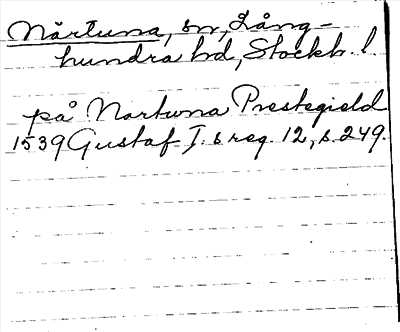 Närtuna, sn, Lång-
hundra hd, Stockh. l
på Nartuna Prestegield
1539 Gustaf I:s reg. 12, s. 249.